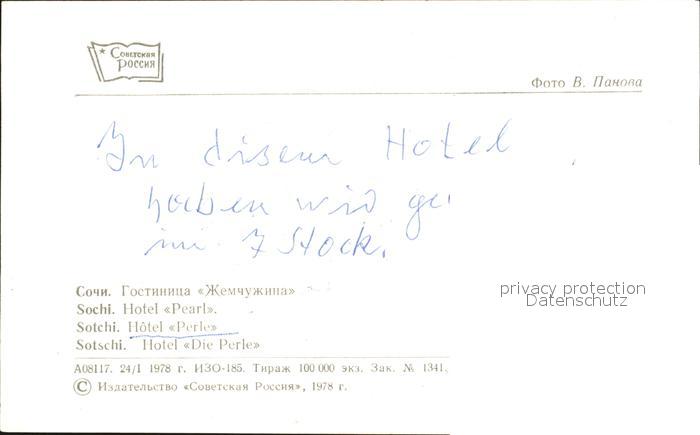 Советская
Россия
Фото В. Панова
In disem Hotel
haben wir ge
im 7 Stock.
Сочи. Гостиница «Жемчужина»
Sochi. Hotel «Pearl».
Sotchi. Hôtel «Perle»
Sotschi. Hotel «Die Perle»
privacy protection
Datenschutz
А08117. 24/I 1978 г. ИЗО-185. Тираж 100 000 экз. Зак. № 1341.
© Издательство «Советская Россия», 1978 г.